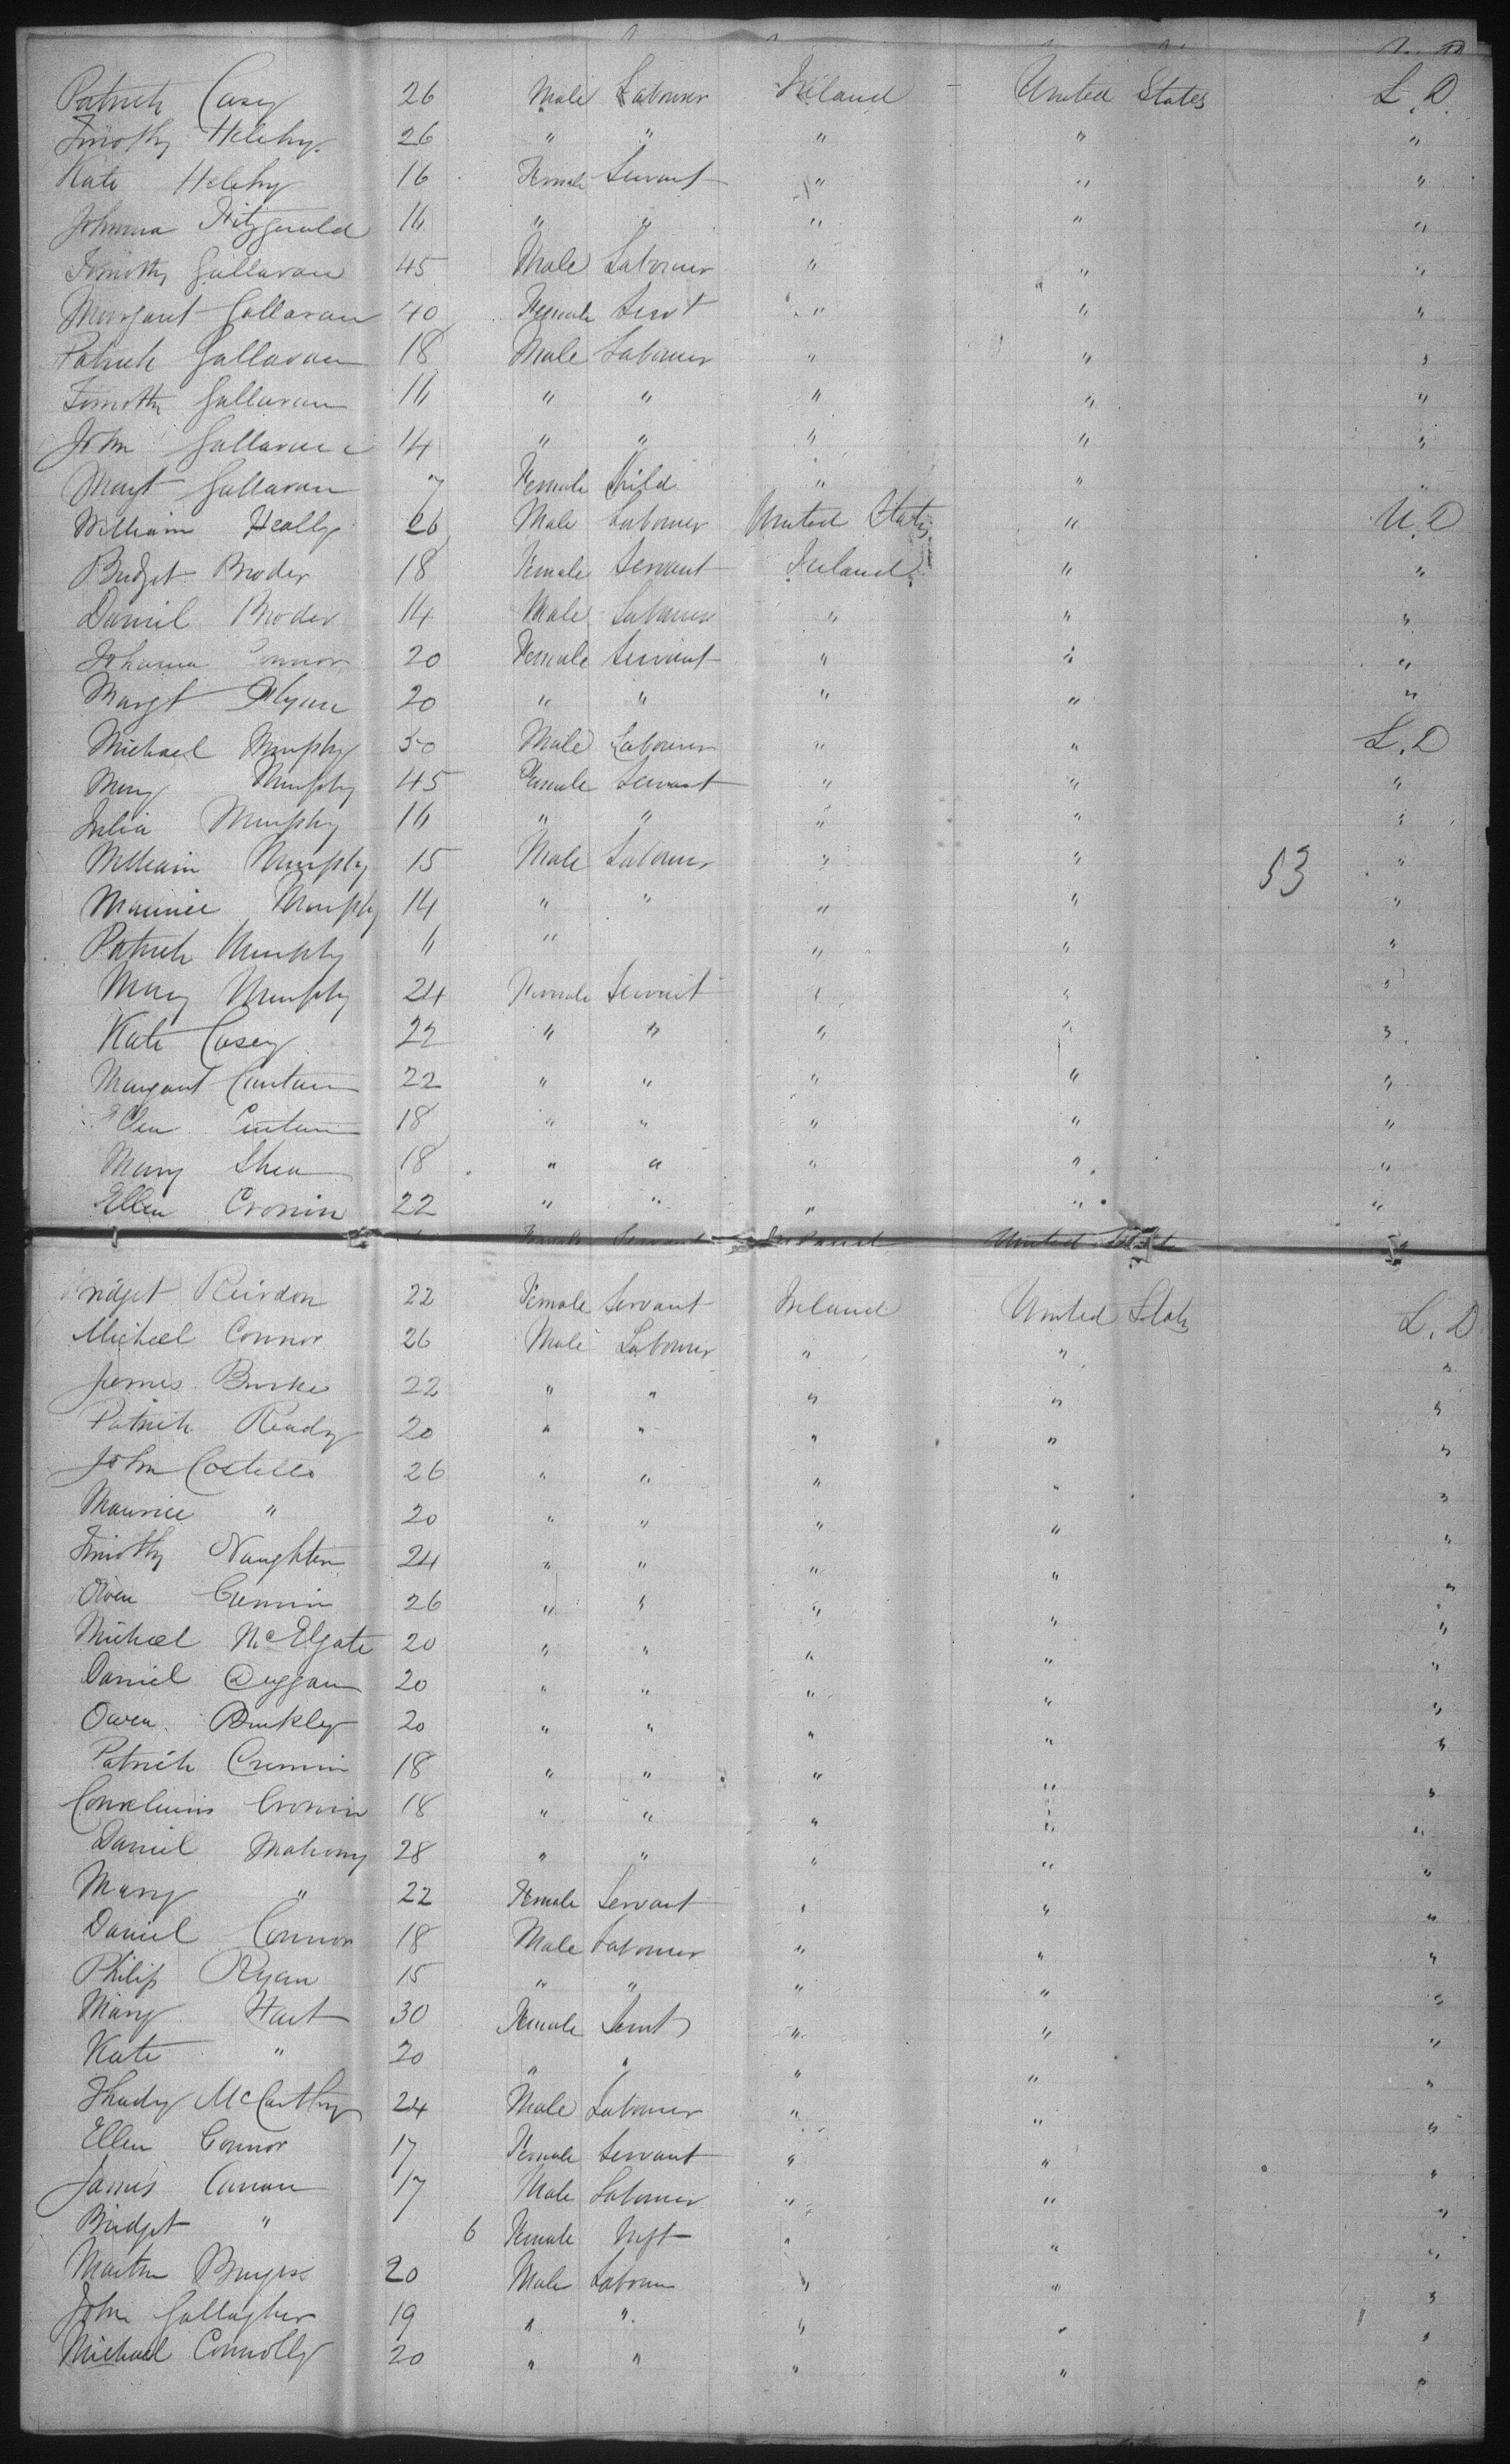 Patrick Casey 26 Male Labourer Ireland United States L.D.
Timothy Helehy 26 " " " " "
Kate Helehy 16 Female Servant " " "
Johanna Fitzgerald 16 " " " " "
Timothy Gallavan 45 Male Labourer " " "
Margaret Gallavan 40 Female Servt " " "
Patrick Gallavan 18 Male Labourer " " "
Timothy Gallavan 16 " " " " "
John Gallavan 14 " " " " "
Margt Gallavan 7 Female Child " " "
William Heally 26 Male Labourer United States " U.D
Bridget Broder 18 Female Servant Ireland " "
Daniel Broder 14 Male Labourer " " "
Johanna Connor 20 Female Servant " " "
Margt Flynn 20 " " " " "
Michael Murphy 50 Male Labourer " " L.D
Mary Murphy 45 Female Servant " " "
Julia Murphy 16 " " " " "
William Murphy 15 Male Labourer " " 53 "
Maurice Murphy 14 " " " " "
Patrick Murphy 11 " " " "
Mary Murphy 24 Female Servant " " "
Kate Casey 22 " " " " "
Margaret 22 " " " " "
Ellen 18 " " " " "
Mary Shea 18 " " " " "
Ellen Cronin 22 " " " " "
Female Servant Ireland United States "
Bridget Reirdon 22 Female Servant Ireland United States L.D
Micheel Connor 26 Male Labourer " " "
James Burke 22 " " " " "
Patrick Ready 20 " " " " "
John Costello 26 " " " " "
Maurice " 20 " " " " "
Timothy Naughten 24 " " " " "
Owen Cremin 26 " " " " "
Michael McElgate 20 " " " " "
Daniel Duggan 20 " " " " "
Owen Buckley 20 " " " " "
Patrick Cremin 18 " " " " "
Cornelius Cronin 18 " " " " "
Daniel Mahony 28 " " " " "
Mary " 22 Female Servant " " "
Daniel Connor 18 Male Labourer " " "
Philip Ryan 15 " " " " "
Mary Hart 30 Female Servt " " "
Kate " 20 " " " " "
Thady McCarthy 24 Male Labourer " " "
Ellen Connor 17 Female Servant " " "
James 17 Male Labourer " " "
Bridget " 6 Female " " "
Martin Burgess 20 Male Labourer " " "
John Gallagher 19 " " " " "
Michael Connolly 20 " " " " "